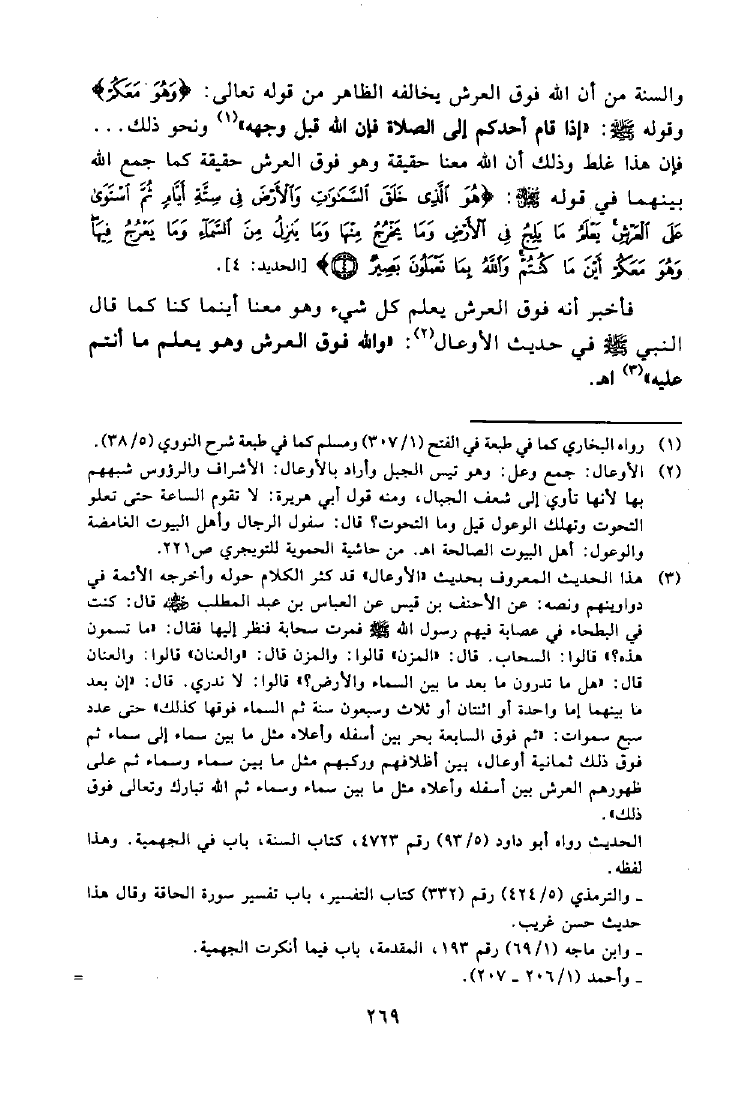 والسنة من أن الله فوق العرش يخالفه الظاهر من قوله تعالى: ﴿وَهُوَ مَعَكُمْ﴾
وقوله ﷺ: «إذا قام أحدكم إلى الصلاة فإن الله قبل وجهه»(١) ونحو ذلك...
فإن هذا غلط وذلك أن الله معنا حقيقة وهو فوق العرش حقيقة كما جمع الله
بينهما في قوله ﷺ: ﴿هُوَ ٱلَّذِى خَلَقَ ٱلسَّمَٰوَٰتِ وَٱلْأَرْضَ فِى سِتَّةِ أَيَّامٍ ثُمَّ ٱسْتَوَىٰ
عَلَى ٱلْعَرْشِ ۚ يَعْلَمُ مَا يَلِجُ فِى ٱلْأَرْضِ وَمَا يَخْرُجُ مِنْهَا وَمَا يَنزِلُ مِنَ ٱلسَّمَآءِ وَمَا يَعْرُجُ فِيهَا ۖ
وَهُوَ مَعَكُمْ أَيْنَ مَا كُنتُمْ ۚ وَٱللَّهُ بِمَا تَعْمَلُونَ بَصِيرٌ ﴿٤﴾﴾ [الحديد: ٤].
فأخبر أنه فوق العرش يعلم كل شيء وهو معنا أينما كنا كما قال
النبي ﷺ في حديث الأوعال(٢): «والله فوق العرش وهو يعلم ما أنتم
عليه»(٣) اهـ.
(١) رواه البخاري كما في طبعة في الفتح (٣٠٧/١) ومسلم كما في طبعة شرح النووي (٣٨/٥).
(٢) الأوعال: جمع وعل: وهو تيس الجبل وأراد بالأوعال: الأشراف والرؤوس شبههم
بها لأنها تأوي إلى شعف الجبال، ومنه قول أبي هريرة: لا تقوم الساعة حتى تعلو
التحوت وتهلك الوعول قيل وما التحوت؟ قال: سفول الرجال وأهل البيوت الغامضة
والوعول: أهل البيوت الصالحة اهـ. من حاشية الحموية للتويجري ص٢٢١.
(٣) هذا الحديث المعروف بحديث «الأوعال» قد كثر الكلام حوله وأخرجه الأئمة في
دواوينهم ونصه: عن الأحنف بن قيس عن العباس بن عبد المطلب ﷺ قال: كنت
في البطحاء في عصابة فيهم رسول الله ﷺ فمرت سحابة فنظر إليها فقال: «ما تسمون
هذه؟» قالوا: السحاب. قال: «المزن» قالوا: والمزن قال: «والعنان» قالوا: والعنان
قال: «هل ما تدرون ما بعد ما بين السماء والأرض؟» قالوا: لا ندري. قال: «إن بعد
ما بينهما إما واحدة أو اثنتان أو ثلاث وسبعون سنة ثم السماء فوقها كذلك» حتى عدد
سبع سموات: «ثم فوق السابعة بحر بين أسفله وأعلاه مثل ما بين سماء إلى سماء ثم
فوق ذلك ثمانية أوعال، بين أظلافهم وركبهم مثل ما بين سماء وسماء ثم على
ظهورهم العرش بين أسفله وأعلاه مثل ما بين سماء وسماء ثم الله تبارك وتعالى فوق
ذلك».
الحديث رواه أبو داود (٩٣/٥) رقم ٤٧٢٣، كتاب السنة، باب في الجهمية. وهذا
لفظه.
ـ والترمذي (٤٢٤/٥) رقم (٣٣٢) كتاب التفسير، باب تفسير سورة الحاقة وقال هذا
حديث حسن غريب.
ـ وابن ماجه (٦٩/١) رقم ١٩٣، المقدمة، باب فيما أنكرت الجهمية.
ـ وأحمد (٢٠٦/١ ـ ٢٠٧). =
٢٦٩